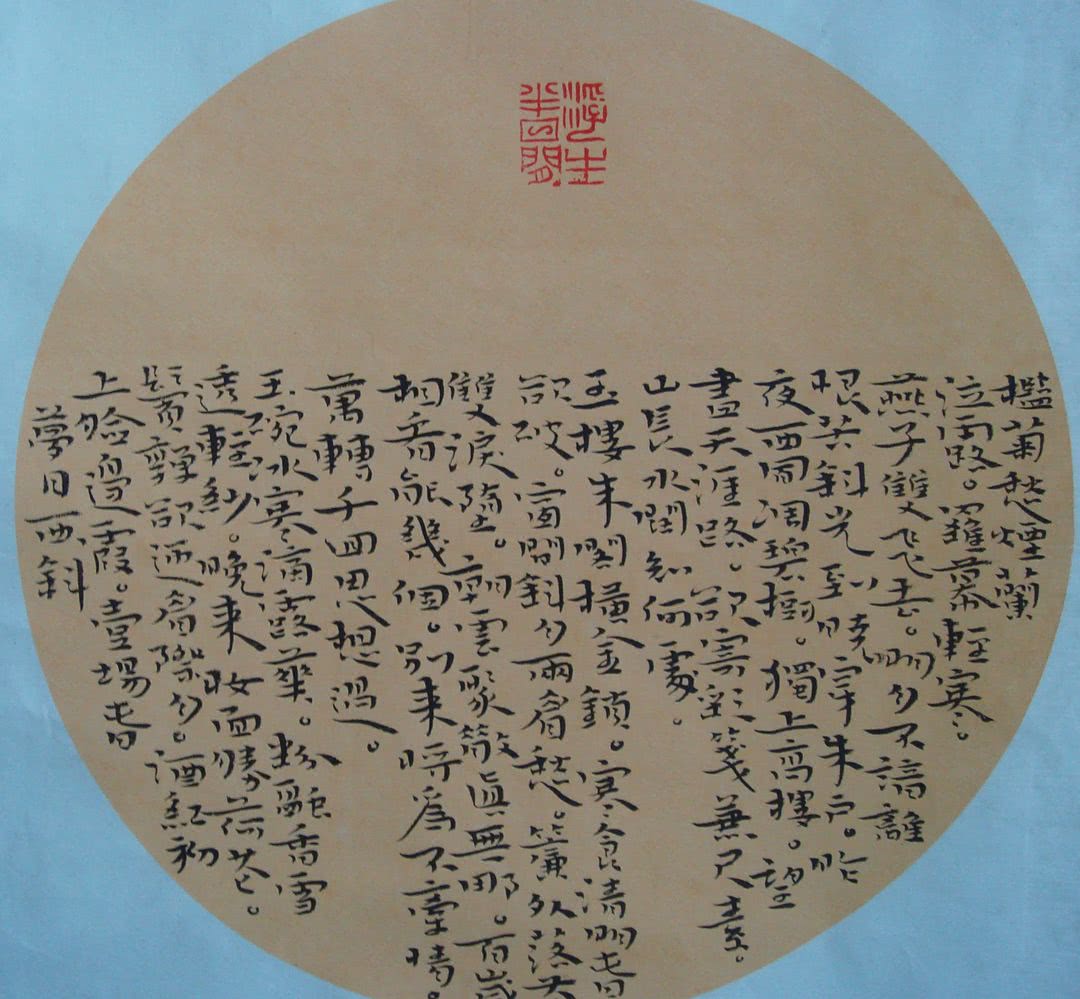 浮生
半日閑
檻菊愁煙蘭
泣露。羅幕輕寒。
燕子雙飛去。明月不諳離
恨苦斜光到曉穿朱戶。昨
夜西風凋碧樹。獨上高樓。望
盡天涯路。欲寄彩箋兼尺素。
山長水闊知何處。
玉樓朱閣橫金鎖。寒食清明春
欲破。窗間斜月兩眉愁。簾外落花
雙淚墮。朝雲聚散真無那。百歲
相看能幾個。別來將為不牽情。
萬轉千回思想過。
玉碗冰寒滴露華。粉融香雪
透輕紗。晚來妝面勝荷花。
鬢嚲欲迎眉際月。酒紅初
上臉邊霞。壹場春
夢日西斜